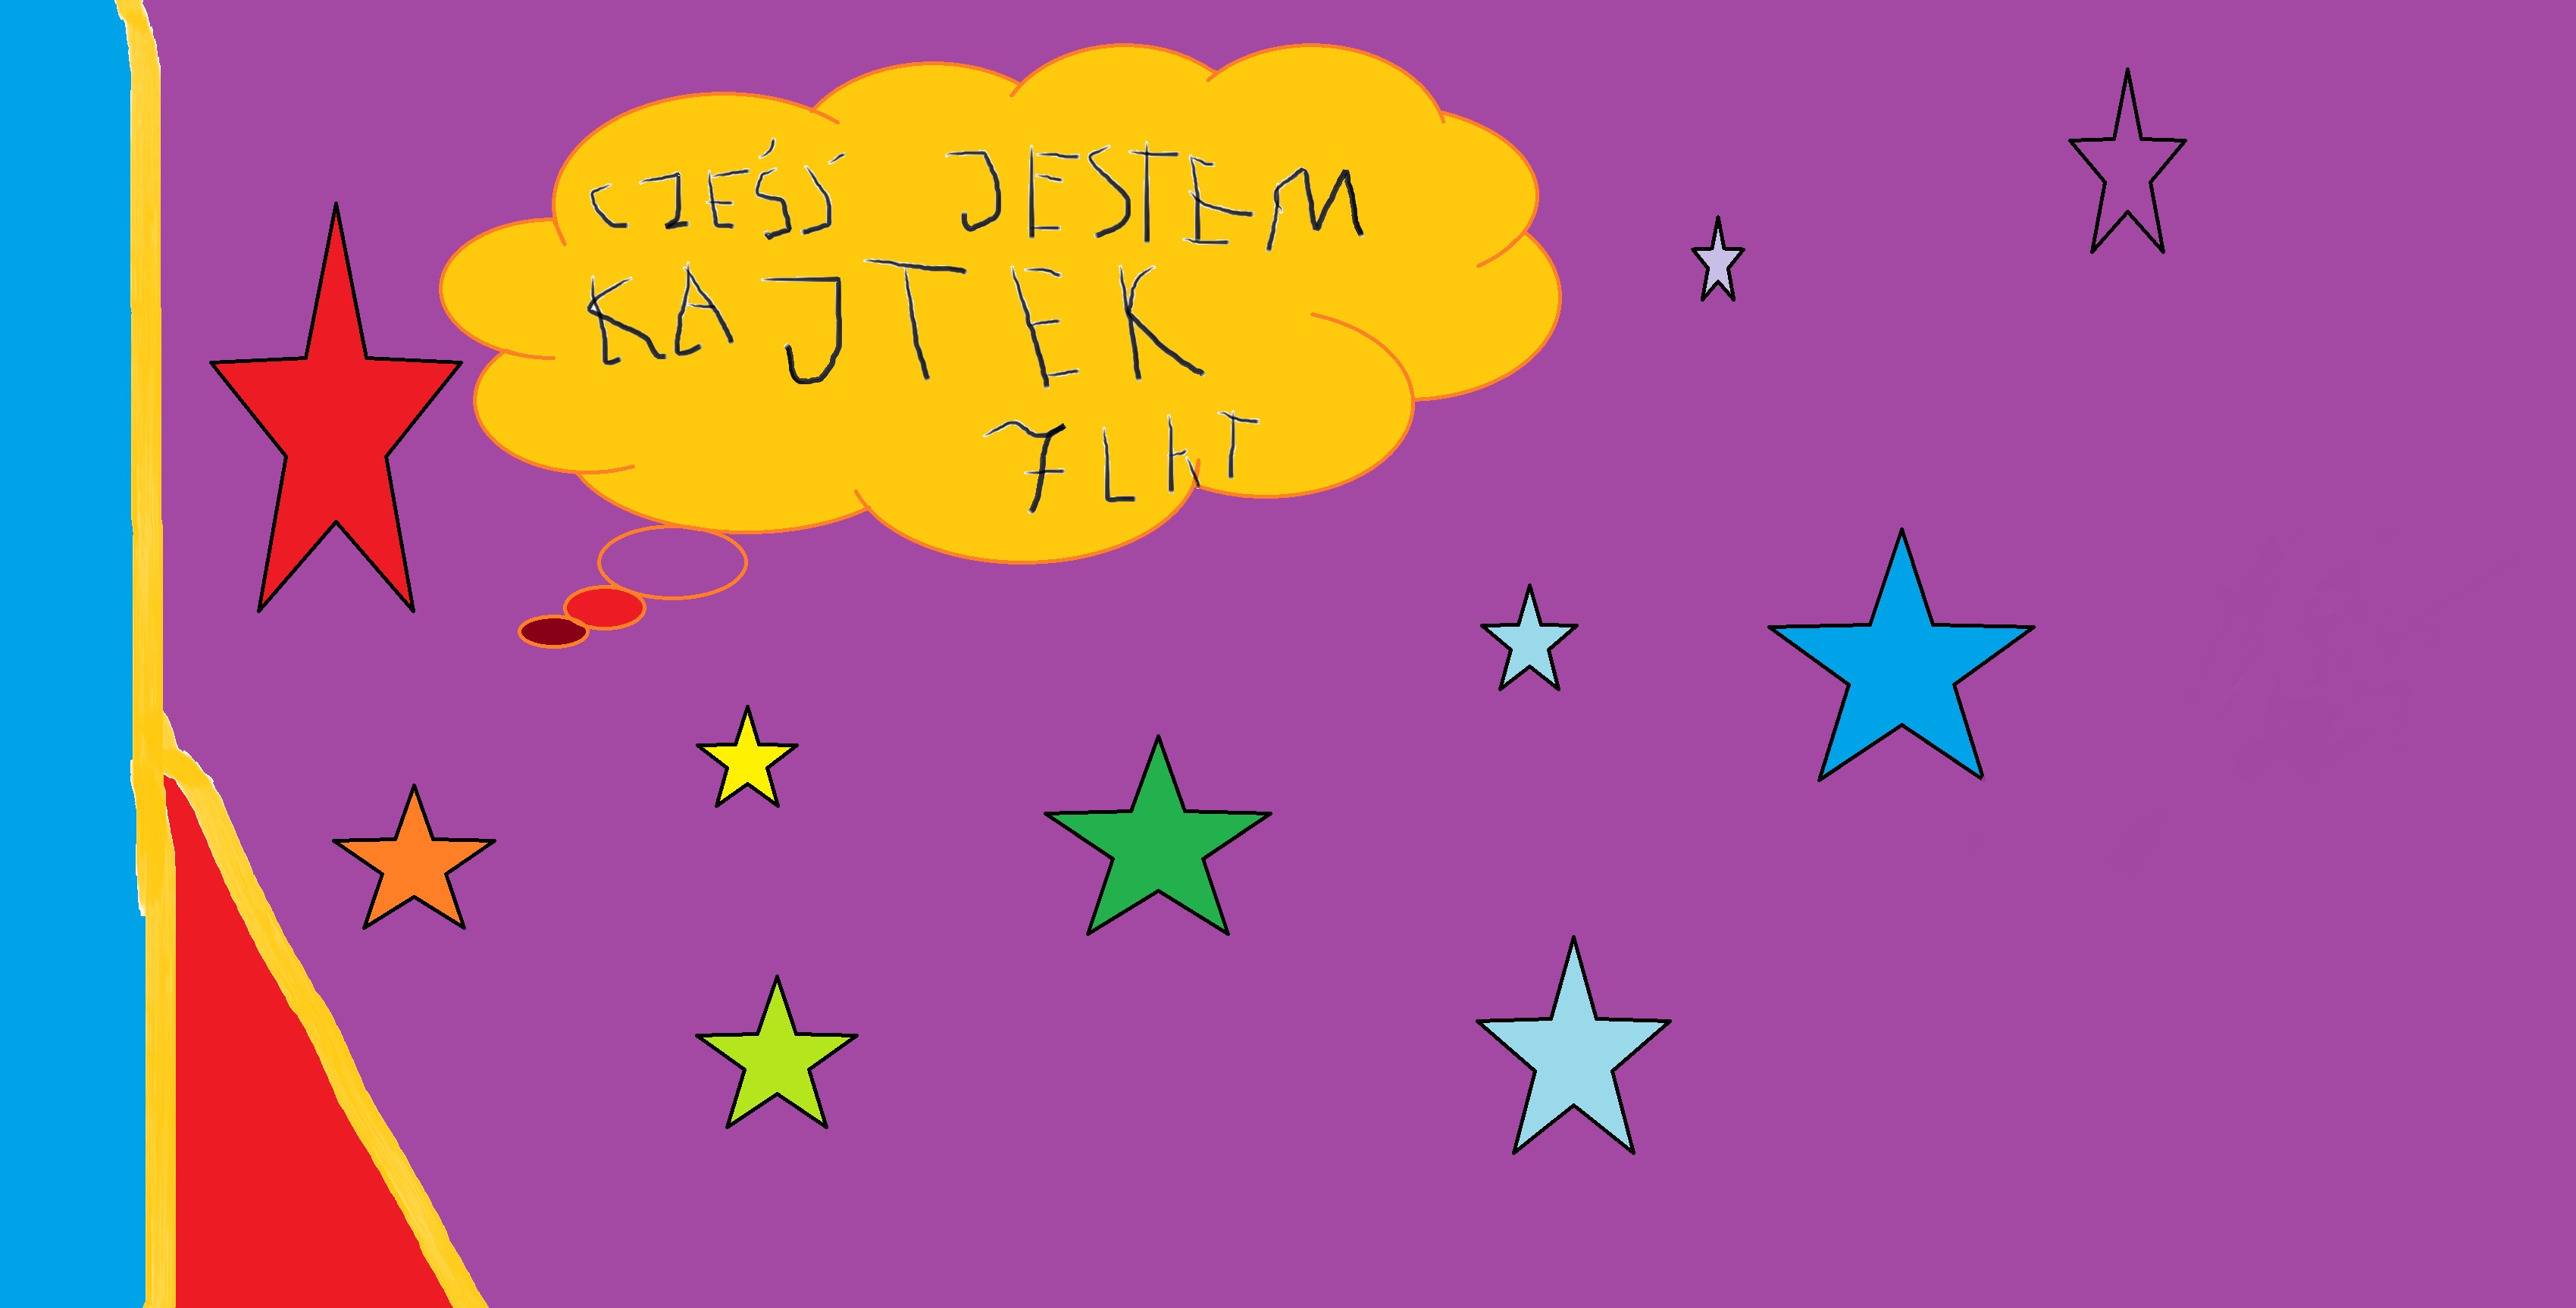 CZEŚĆ JESTEM
KAJTEK
7 LAT